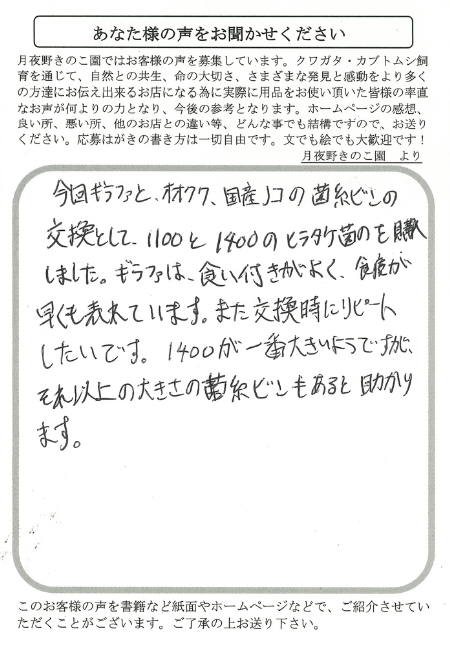 あなた様の声をお聞かせください
月夜野きのこ園ではお客様の声を募集しています。クワガタ・カブトムシ飼
育を通じて、自然との共生、命の大切さ、さまざまな発見と感動をより多く
の方達にお伝え出来るお店になる為に実際に用品をお使い頂いた皆様の率直
なお声が何よりの力となり、今後の参考となります。ホームページの感想、
良い所、悪い所、他のお店との違い等、どんな事でも結構ですので、お送り
ください。応募はがきの書き方は一切自由です。文でも絵でも大歓迎です！
月夜野きのこ園　より
今回ギラファと、オオクワ、国産ノコの菌糸ビンの
交換として、1100と1400のヒラタケ菌のを購入
しました。ギラファは、食い付きがよく、食痕が
早くも表れています。また交換時にリピート
したいです。1400が一番大きいようですが、
それ以上の大きさの菌糸ビンもあると助かり
ます。
このお客様の声を書籍など紙面やホームページなどで、ご紹介させてい
ただくことがございます。ご了承の上お送り下さい。